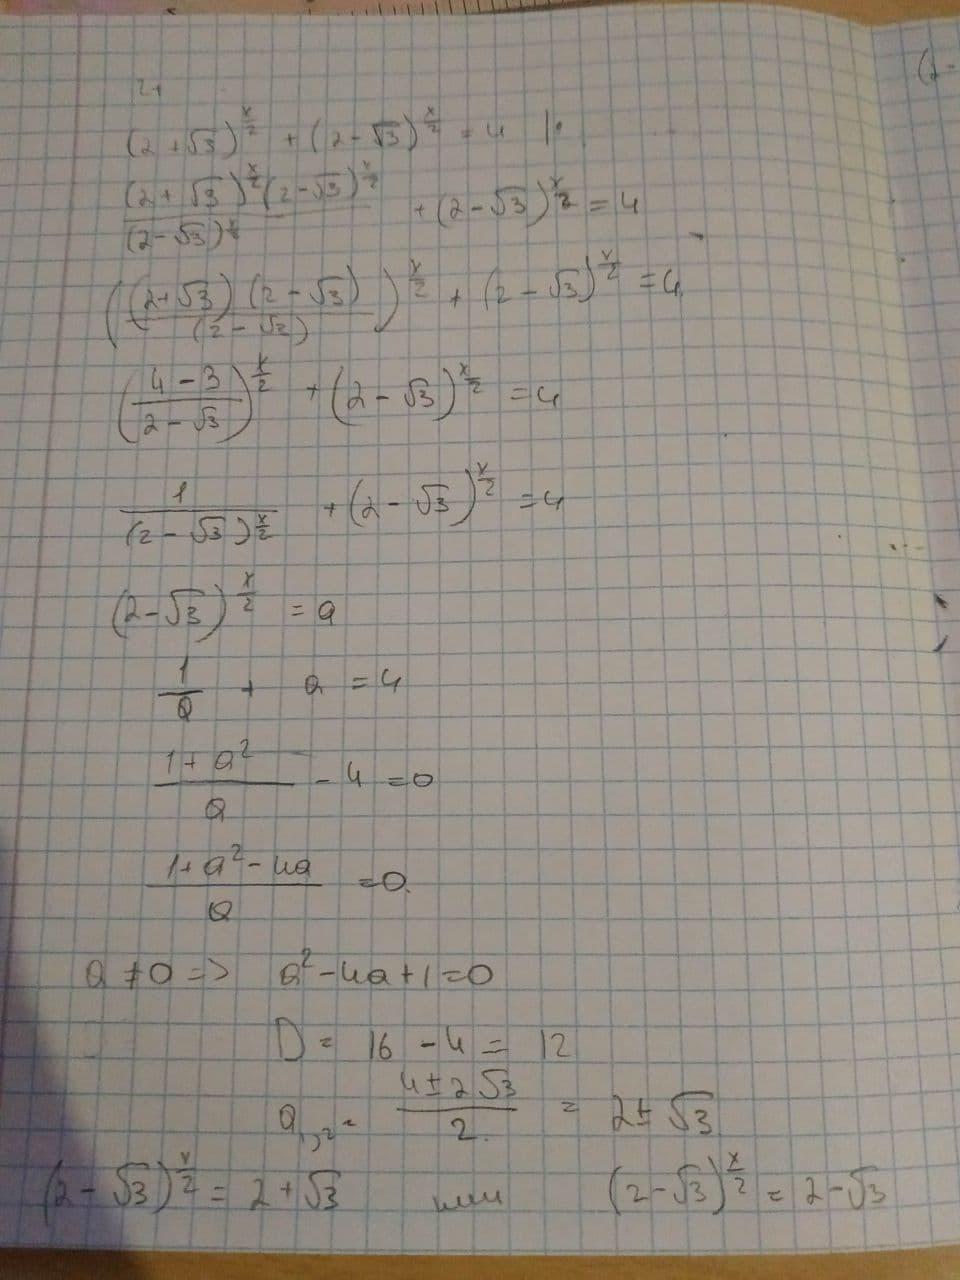 21
(2+√3)^(x/2) + (2-√3)^(x/2) = 4 |·
((2+√3)^(x/2) (2-√3)^(x/2))/((2-√3)^(x/2)) + (2-√3)^(x/2) = 4
(((2+√3)(2-√3))/((2-√3)))^(x/2) + (2-√3)^(x/2) = 4
((4-3)/(2-√3))^(x/2) + (2-√3)^(x/2) = 4
1/((2-√3)^(x/2)) + (2-√3)^(x/2) = 4
(2-√3)^(x/2) = a
1/a + a = 4
(1+a²)/a - 4 = 0
(1+a²-4a)/a = 0
a ≠ 0 => a²-4a+1=0
D = 16 - 4 = 12
a₁,₂ = (4±2√3)/2 = 2±√3
(2-√3)^(x/2) = 2+√3 или (2-√3)^(x/2) = 2-√3